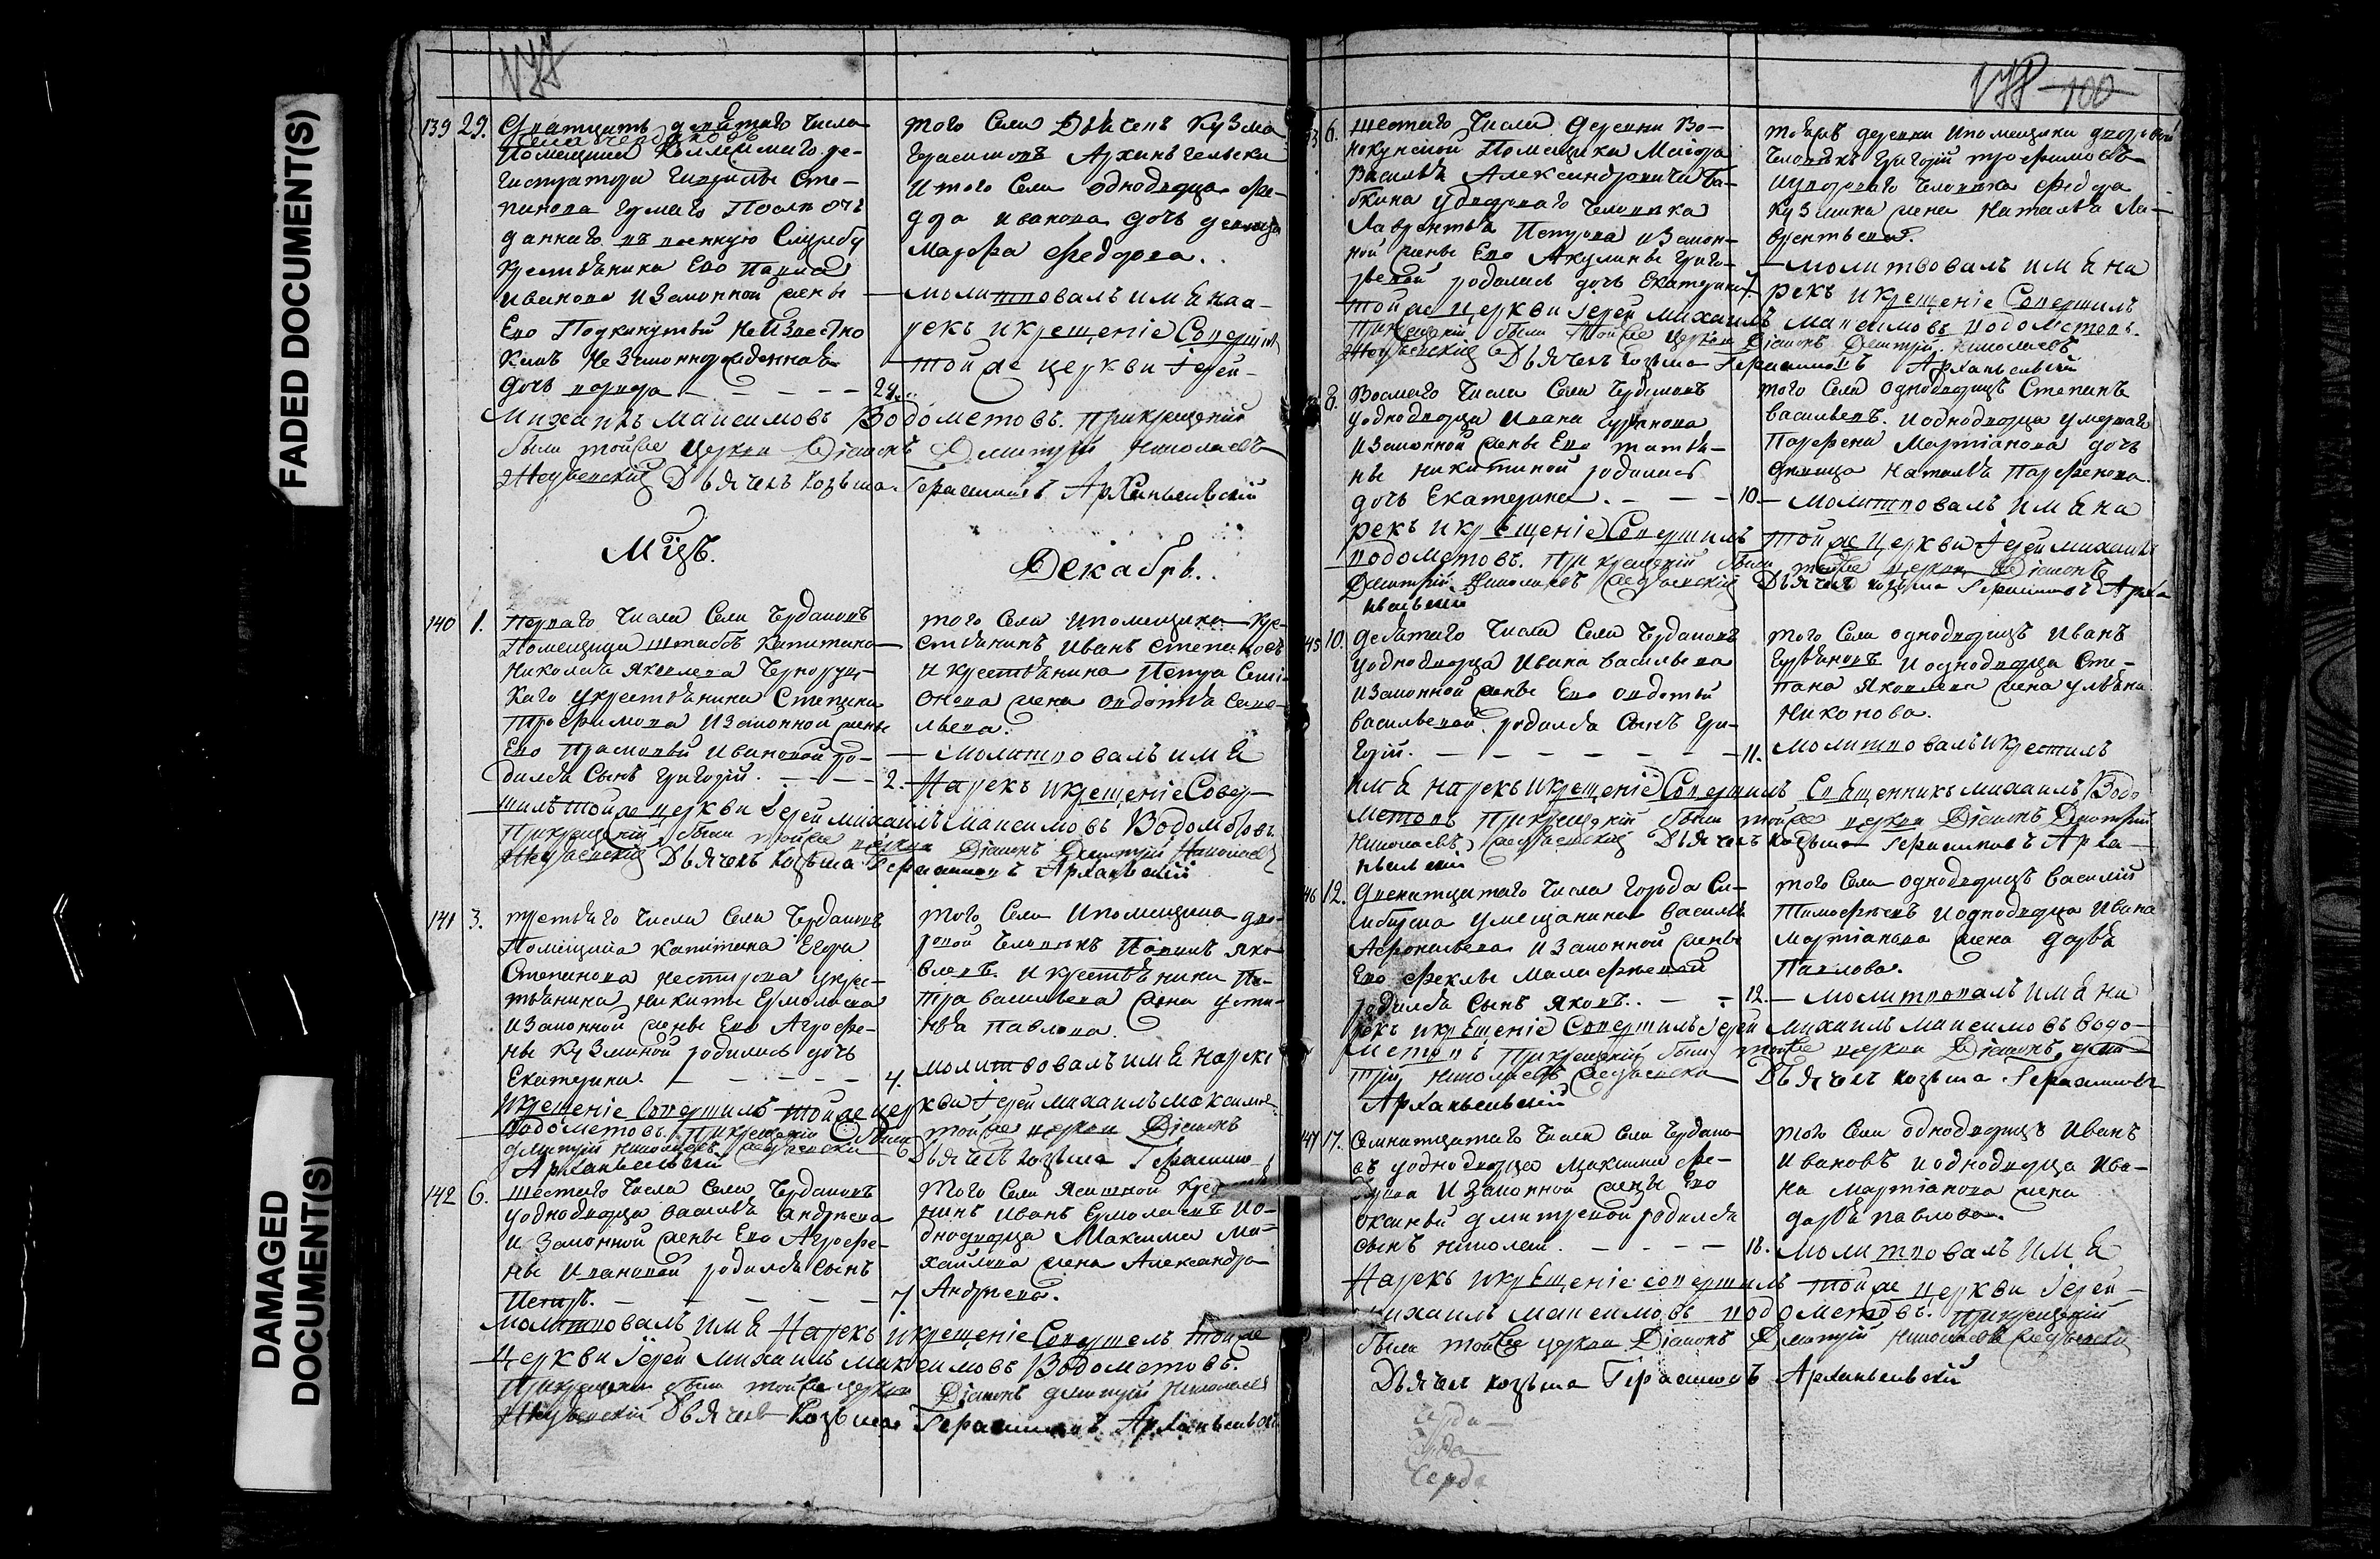 FADED DOCUMENT(S)
DAMAGED
DOCUMENT(S)
139 29. Дватцать девятаго числа
Помещика Коллежскаго ре-
гистратора Гаврилы Сте-
панова Думаго После от
даннаго въ военную Службу
Крестьянина Ево Павла
Иванова изаконной жены
Ево Подкинутый неизвестно
кемъ незаконнорожденная
дочь варвара 29.
того Села Дьячекъ Кузма
Герасимовъ Архангельски
итого Села однодворца Фе-
дора иванова дочь девица
Марфа Федорова.
молитвовалъ имя на-
рекъ икрещеніе Соверши
тойже церкви Іерей
Михаилъ Максимовъ Водометовъ. Прикрещеніи
были тойже церкви Діаконъ Дмитрій Николаевъ
Дьячекъ Козьма Герасимовъ Архангельскій
Мцъ. Декабрь.
140 1. перваго числа Села Чердаковъ
Помещика штабсъ Капитана
Николая Яковлева
укрестьянина Степана
Трофимова изаконной жены
Ево Прасковьи Ивановой ро-
дился Сынъ Григорій. 2.
того Села ипомещика Кре-
стьянинъ Иванъ Степановъ
и крестьянина Петра Семі-
онова жена авдотья Саве-
льева.
Молитвовалъ имя
Нарекъ икрещеніе Совер-
шилъ тойже церкви Іерей Михаилъ Максимовъ Водометовъ
Прикрещеніи были тойже церкви Діаконъ Дмитрій Николаевъ
Дьячекъ Козьма Герасимовъ Архангельскій
141 3. третьяго числа Села Чердаковъ
Помещика капитана Егора
Степанова Нестерова укрес-
тьянина Никиты Ермолаева
изаконной жены Ево Агрофе-
ны Кузминой родилась дочь
Екатерина. 4.
того Села ипомещика дво-
ровой человекъ Павелъ Яко-
влевъ. и крестьянина Пе-
тра васильева жена усти-
нья Павлова.
молитвовалъ имя нарекъ
икрещеніе Совершилъ тойже церкви Іерей Михаилъ Максимовъ
Водометовъ. Прикрещеніи были тойже церкви Діаконъ
Дмитрій Николаевъ Дьячекъ Козьма Герасимовъ
Архангельскій
142 6. шестаго числа Села Чердаковъ
уоднодворца василья андреева
и Законной жены Ево Агрофе-
ны Ивановой родился сынъ
Петръ. 7.
Того Села
нинъ Иванъ Ермолаевъ ио-
днодворца Максима Ми-
хайлова жена Александра
Андреева.
Молитвовалъ имя Нарекъ икрещеніе Совершилъ тойже
Церкви Іерей Михаилъ Максимовъ Водометовъ.
Прикрещеніи были тойже церкви Діаконъ Дмитрій Николаевъ
Дьячекъ Козьма Герасимовъ Архангельскій
100
6. шестаго числа деревни Во-
Помещика Маіора
Василья Александровича Ба-
бкина удвороваго человека
Лаврентья Петрова изакон-
ной жены Ево Акулины Григо-
рьевой родилась дочь Екатерина 7.
тойжъ деревни ипомещика дворовой
человекъ Григорій трофимовъ
идвороваго человека Федора
Кузмина жена Наталья Ла-
врентьева.
молитвовалъ имя на
рекъ икрещеніе Совершилъ
тойже церкви Іерей Михаилъ Максимовъ водометовъ.
Прикрещеніи были тойже церкви Діаконъ Дмитрій Николаевъ
Дьячекъ Козьма Герасимовъ Архангельскій
8. Восмаго числа Села Чердаковъ
уоднодворца Ивана Гурьянова
изаконной жены Ево татья-
ны никитиной родилась
дочь Екатерина. 10.
того Села однодворецъ Степанъ
васильевъ. иоднодворца умершаго
Парфена Мартіанова дочь
девица Наталья Парфенова.
молитвовалъ имя на
рекъ икрещеніе Совершилъ тойже церкви Іерей Михаилъ
водометовъ. Прикрещеніи были тойже церкви Діаконъ
Дмитрій Николаевъ Дьячекъ Козьма Герасимовъ Арха
нгельскій
45 10. десятаго числа Села Чердаковъ
уоднодворца Ивана васильева
изаконной жены Ево авдотьи
васильевой родился Сынъ Гри-
горій. 11.
того Села однодворецъ Иванъ
Гурьяновъ иоднодворца Сте-
пана Яковлева жена ульяна
Никонова.
молитвовалъ икрестилъ
имя нарекъ икрещеніе Совершилъ Священникъ Михаилъ Водо
метовъ Прикрещеніи были тойже церкви Діаконъ Дмитрій
Николаевъ Дьячекъ Козьма Герасимовъ Арха-
нгельскій
46 12. двенатцатаго числа города Си-
мбирска умещанина василья
Афонасьева изаконной жены
Ево Феклы Малафеевой
родился сынъ Яковъ. 12.
того Села однодворецъ василій
Тимофеевъ иоднодворца Ивана
Мартіанова жена дарья
Павлова.
Молитвовалъ имя на
рекъ икрещеніе Совершилъ Іерей Михаилъ Максимовъ водо-
метовъ Прикрещеніи были тойже церкви Діаконъ дми-
трій Николаевъ Дьячекъ Козьма Герасимовъ
Архангельскій
147 17. Семнатцатаго числа Села Чердако-
въ уоднодворца Максима Фе-
дорова изаконной жены Ево
оксиньи дмитревой родился
сынъ николай. 18.
того Села однодворецъ Иванъ
Ивановъ иоднодворца Ива-
на Мартіанова жена
дарья павлова.
Молитвовалъ имя
Нарекъ икрещеніе совершилъ тойже церкви Іерей
Михаилъ Максимовъ водометовъ. Прикрещеніи
были тойже церкви Діаконъ Дмитрій Николаевъ
Дьячекъ Козьма Герасимовъ Архангельскій